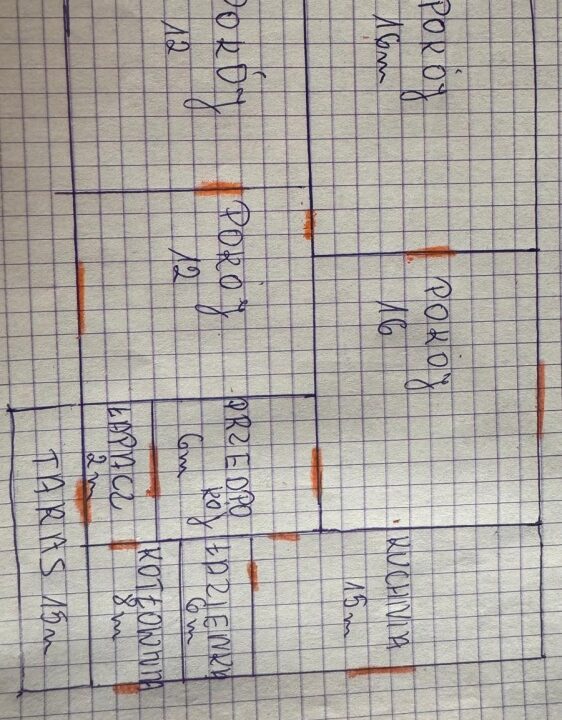 POKÓJ
16m
POKÓJ
12
POKÓJ
16
POKÓJ
12
KUCHNIA
15m
PRZEDPO
KÓJ
6m
ŁAPACZ
2m
ŁAZIENKA
6m
KOTŁOWNIA
8m
TARAS 15m